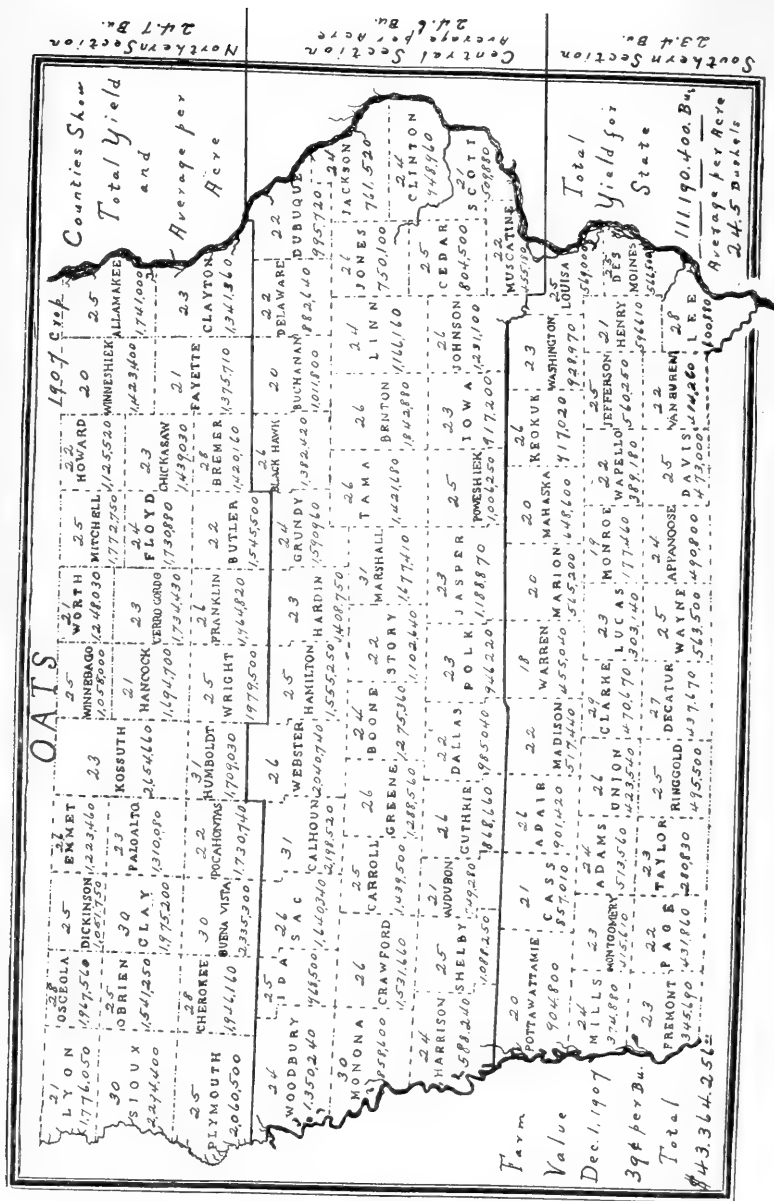 OATS
1907 Crop
Counties Show
Total Yield
and
Average per
Acre
Northern Section
24.7 Bu.
Central Section
Average per Acre
24.6 Bu.
Southern Section
23.4 Bu.
21
LYON
1,776,050
28
OSCEOLA
1,967,560
25
DICKINSON
1,051,750
EMMET
1,223,460
23
KOSSUTH
2,654,660
25
WINNEBAGO
1,058,000
21
WORTH
1,248,030
25
MITCHELL
1,772,750
22
HOWARD
1,125,520
20
WINNESHIEK
1,423,400
25
ALLAMAKEE
1,741,000
30
SIOUX
2,294,400
25
OBRIEN
1,541,250
30
CLAY
1,975,200
23
PALOALTO
1,310,080
21
HANCOCK
1,691,700
23
CERRO GORDO
1,734,430
24
FLOYD
1,730,880
23
CHICKASAW
1,439,030
21
FAYETTE
1,375,710
23
CLAYTON
1,341,360
25
PLYMOUTH
2,060,500
28
CHEROKEE
1,946,160
30
BUENA VISTA
2,335,300
22
POCAHONTAS
1,730,740
31
HUMBOLDT
1,709,030
25
WRIGHT
1,979,500
26
FRANKLIN
1,964,820
22
BUTLER
1,545,500
28
BREMER
1,420,160
24
WOODBURY
1,350,240
25
IDA
968,500
26
SAC
1,640,340
31
CALHOUN
2,198,520
26
WEBSTER
2,040,740
25
HAMILTON
1,555,250
23
HARDIN
1,408,750
24
GRUNDY
1,590,960
26
BLACK HAWK
1,382,420
20
BUCHANAN
1,011,800
22
DELAWARE
882,640
22
DUBUQUE
995,720
30
MONONA
858,600
26
CRAWFORD
1,531,660
25
CARROLL
1,439,500
26
GREENE
1,288,560
24
BOONE
1,275,360
22
STORY
1,102,640
31
MARSHALL
1,677,410
26
TAMA
1,421,680
26
BENTON
1,842,880
24
LINN
1,166,160
26
JONES
750,100
24
JACKSON
761,520
24
HARRISON
588,240
25
SHELBY
1,088,250
21
AUDUBON
749,280
26
GUTHRIE
868,660
22
DALLAS
985,040
23
POLK
946,220
23
JASPER
1,188,870
25
POWESHIEK
1,006,250
23
IOWA
917,200
26
JOHNSON
1,231,100
25
CEDAR
804,500
24
CLINTON
948,960
21
SCOTT
509,880
22
MUSCATINE
455,180
20
POTTAWATTAMIE
904,800
21
CASS
857,010
26
ADAIR
901,420
22
MADISON
517,440
18
WARREN
455,040
20
MARION
515,200
20
MAHASKA
648,600
26
KEOKUK
917,020
23
WASHINGTON
928,970
25
LOUISA
569,000
24
MILLS
374,880
23
MONTGOMERY
415,610
24
ADAMS
513,560
26
UNION
423,540
29
CLARKE
470,670
23
LUCAS
303,140
19
MONROE
177,460
22
WAPELLO
389,180
25
JEFFERSON
560,250
21
HENRY
596,610
DES
MOINES
566,500
23
FREMONT
345,690
22
PAGE
431,860
23
TAYLOR
280,830
25
RINGGOLD
495,500
27
DECATUR
437,670
25
WAYNE
563,500
24
APPANOOSE
490,800
25
DAVIS
473,000
22
VAN BUREN
414,260
28
LEE
400,880
Farm
Value
Dec. 1. 1907
39¢ per Bu.
Total
$43.364.256.00
Total
Yield for
State
111.190.400. Bu.
Average per Acre
24.5 Bushels